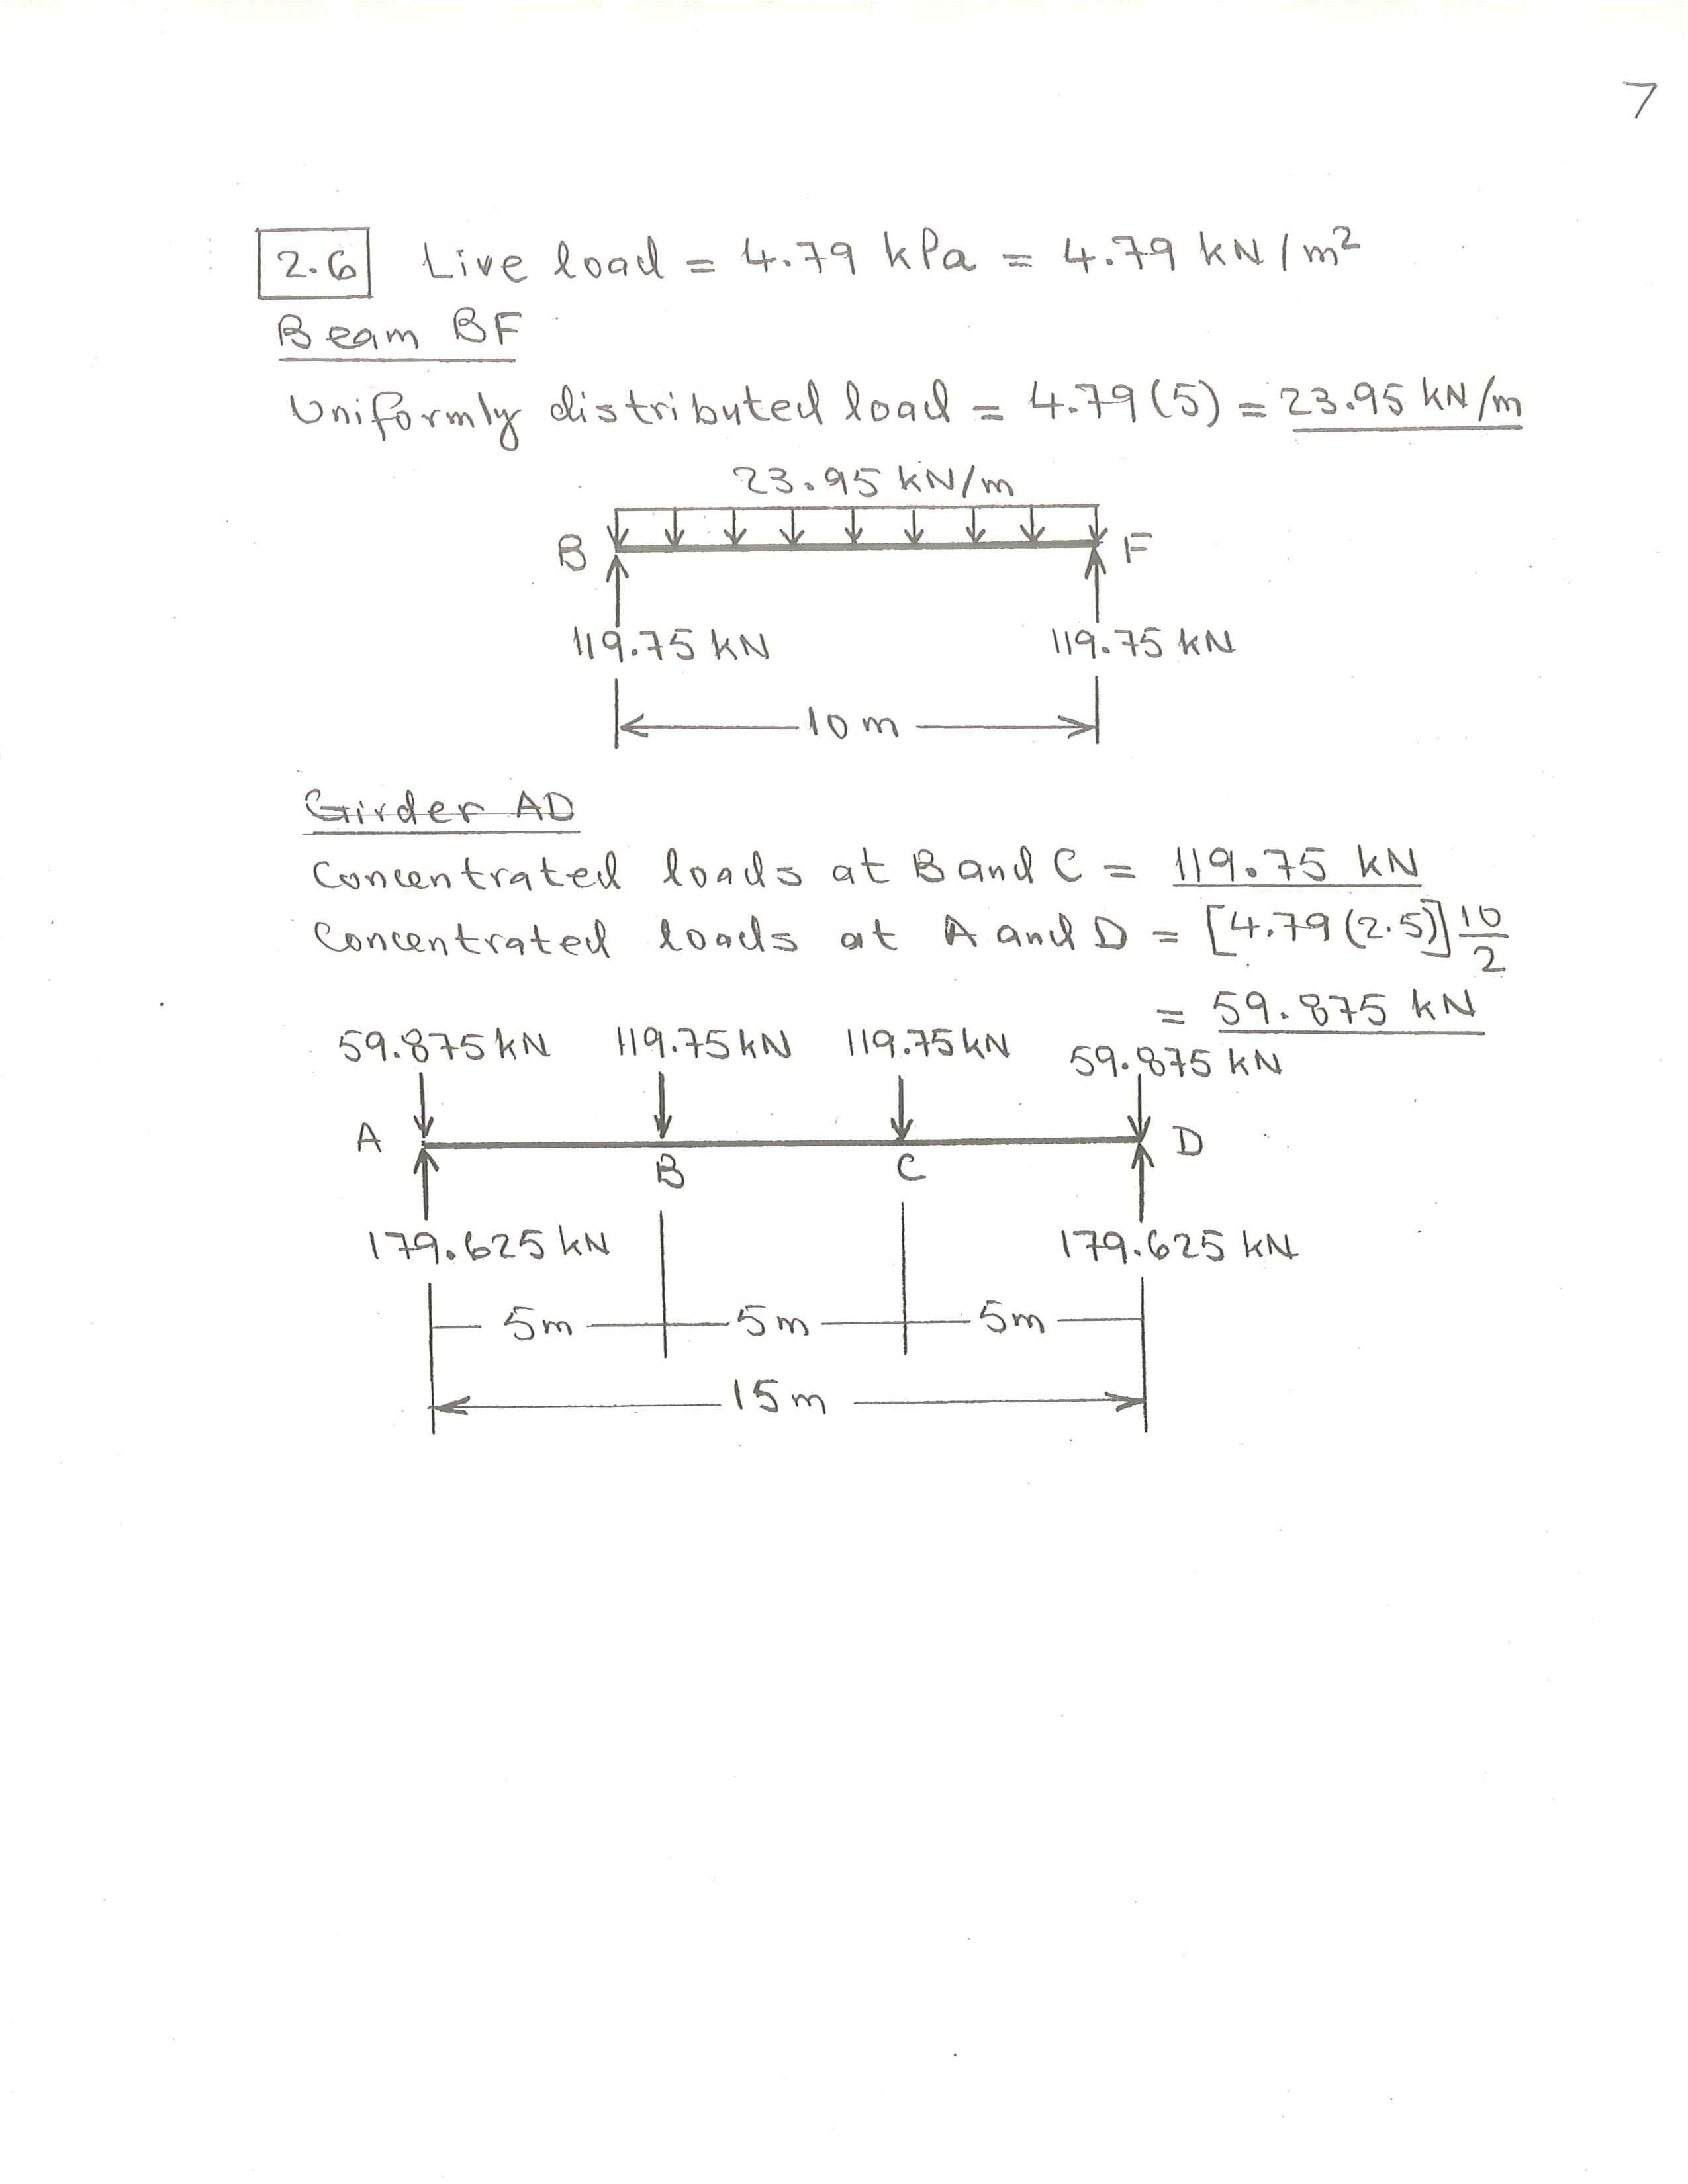 7
2.6 Live load = 4.79 kPa = 4.79 kN/m²
Beam BF
Uniformly distributed load = 4.79(5) = 23.95 kN/m
23.95 kN/m
B F
119.75 kN 119.75 kN
10 m
Girder AD
Concentrated loads at B and C = 119.75 kN
Concentrated loads at A and D = [4.79(2.5)] 10/2
= 59.875 kN
59.875 kN 119.75 kN 119.75 kN 59.875 kN
A D
B C
179.625 kN 179.625 kN
5m 5m 5m
15 m